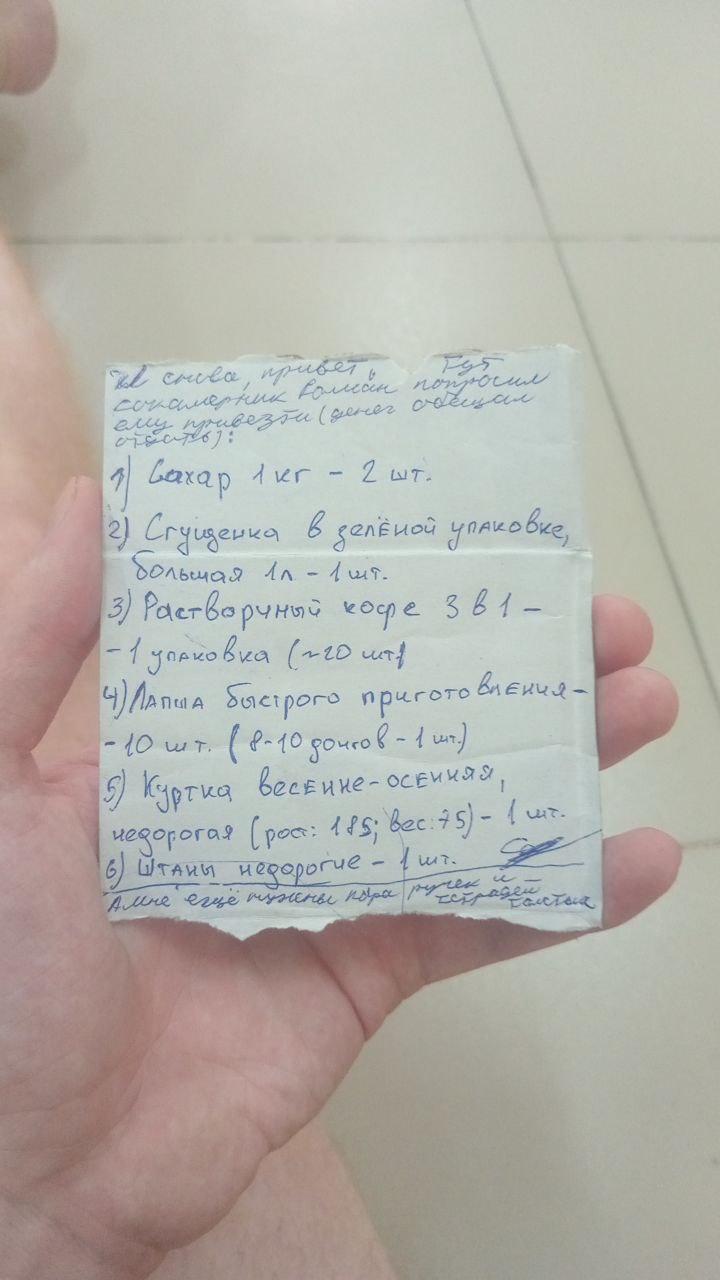 И снова, привет, Тут
сокамерник Роман попросил
ему привезти (денег обещал
отдать):
1) Сахар 1 кг – 2 шт.
2) Сгущенка в зелёной упаковке,
большая 1л – 1 шт.
3) Растворчный кофе 3 в 1 –
– 1 упаковка (~20 шт)
4) Лапша быстрого приготовления –
– 10 шт. (8-10 донгов – 1 шт.)
5) Куртка весенне-осенняя,
недорогая (рост: 185; вес: 75) – 1 шт.
6) Штаны недорогие – 1 шт.
А мне ещё нужны пара ручек и
тетрадей толстых